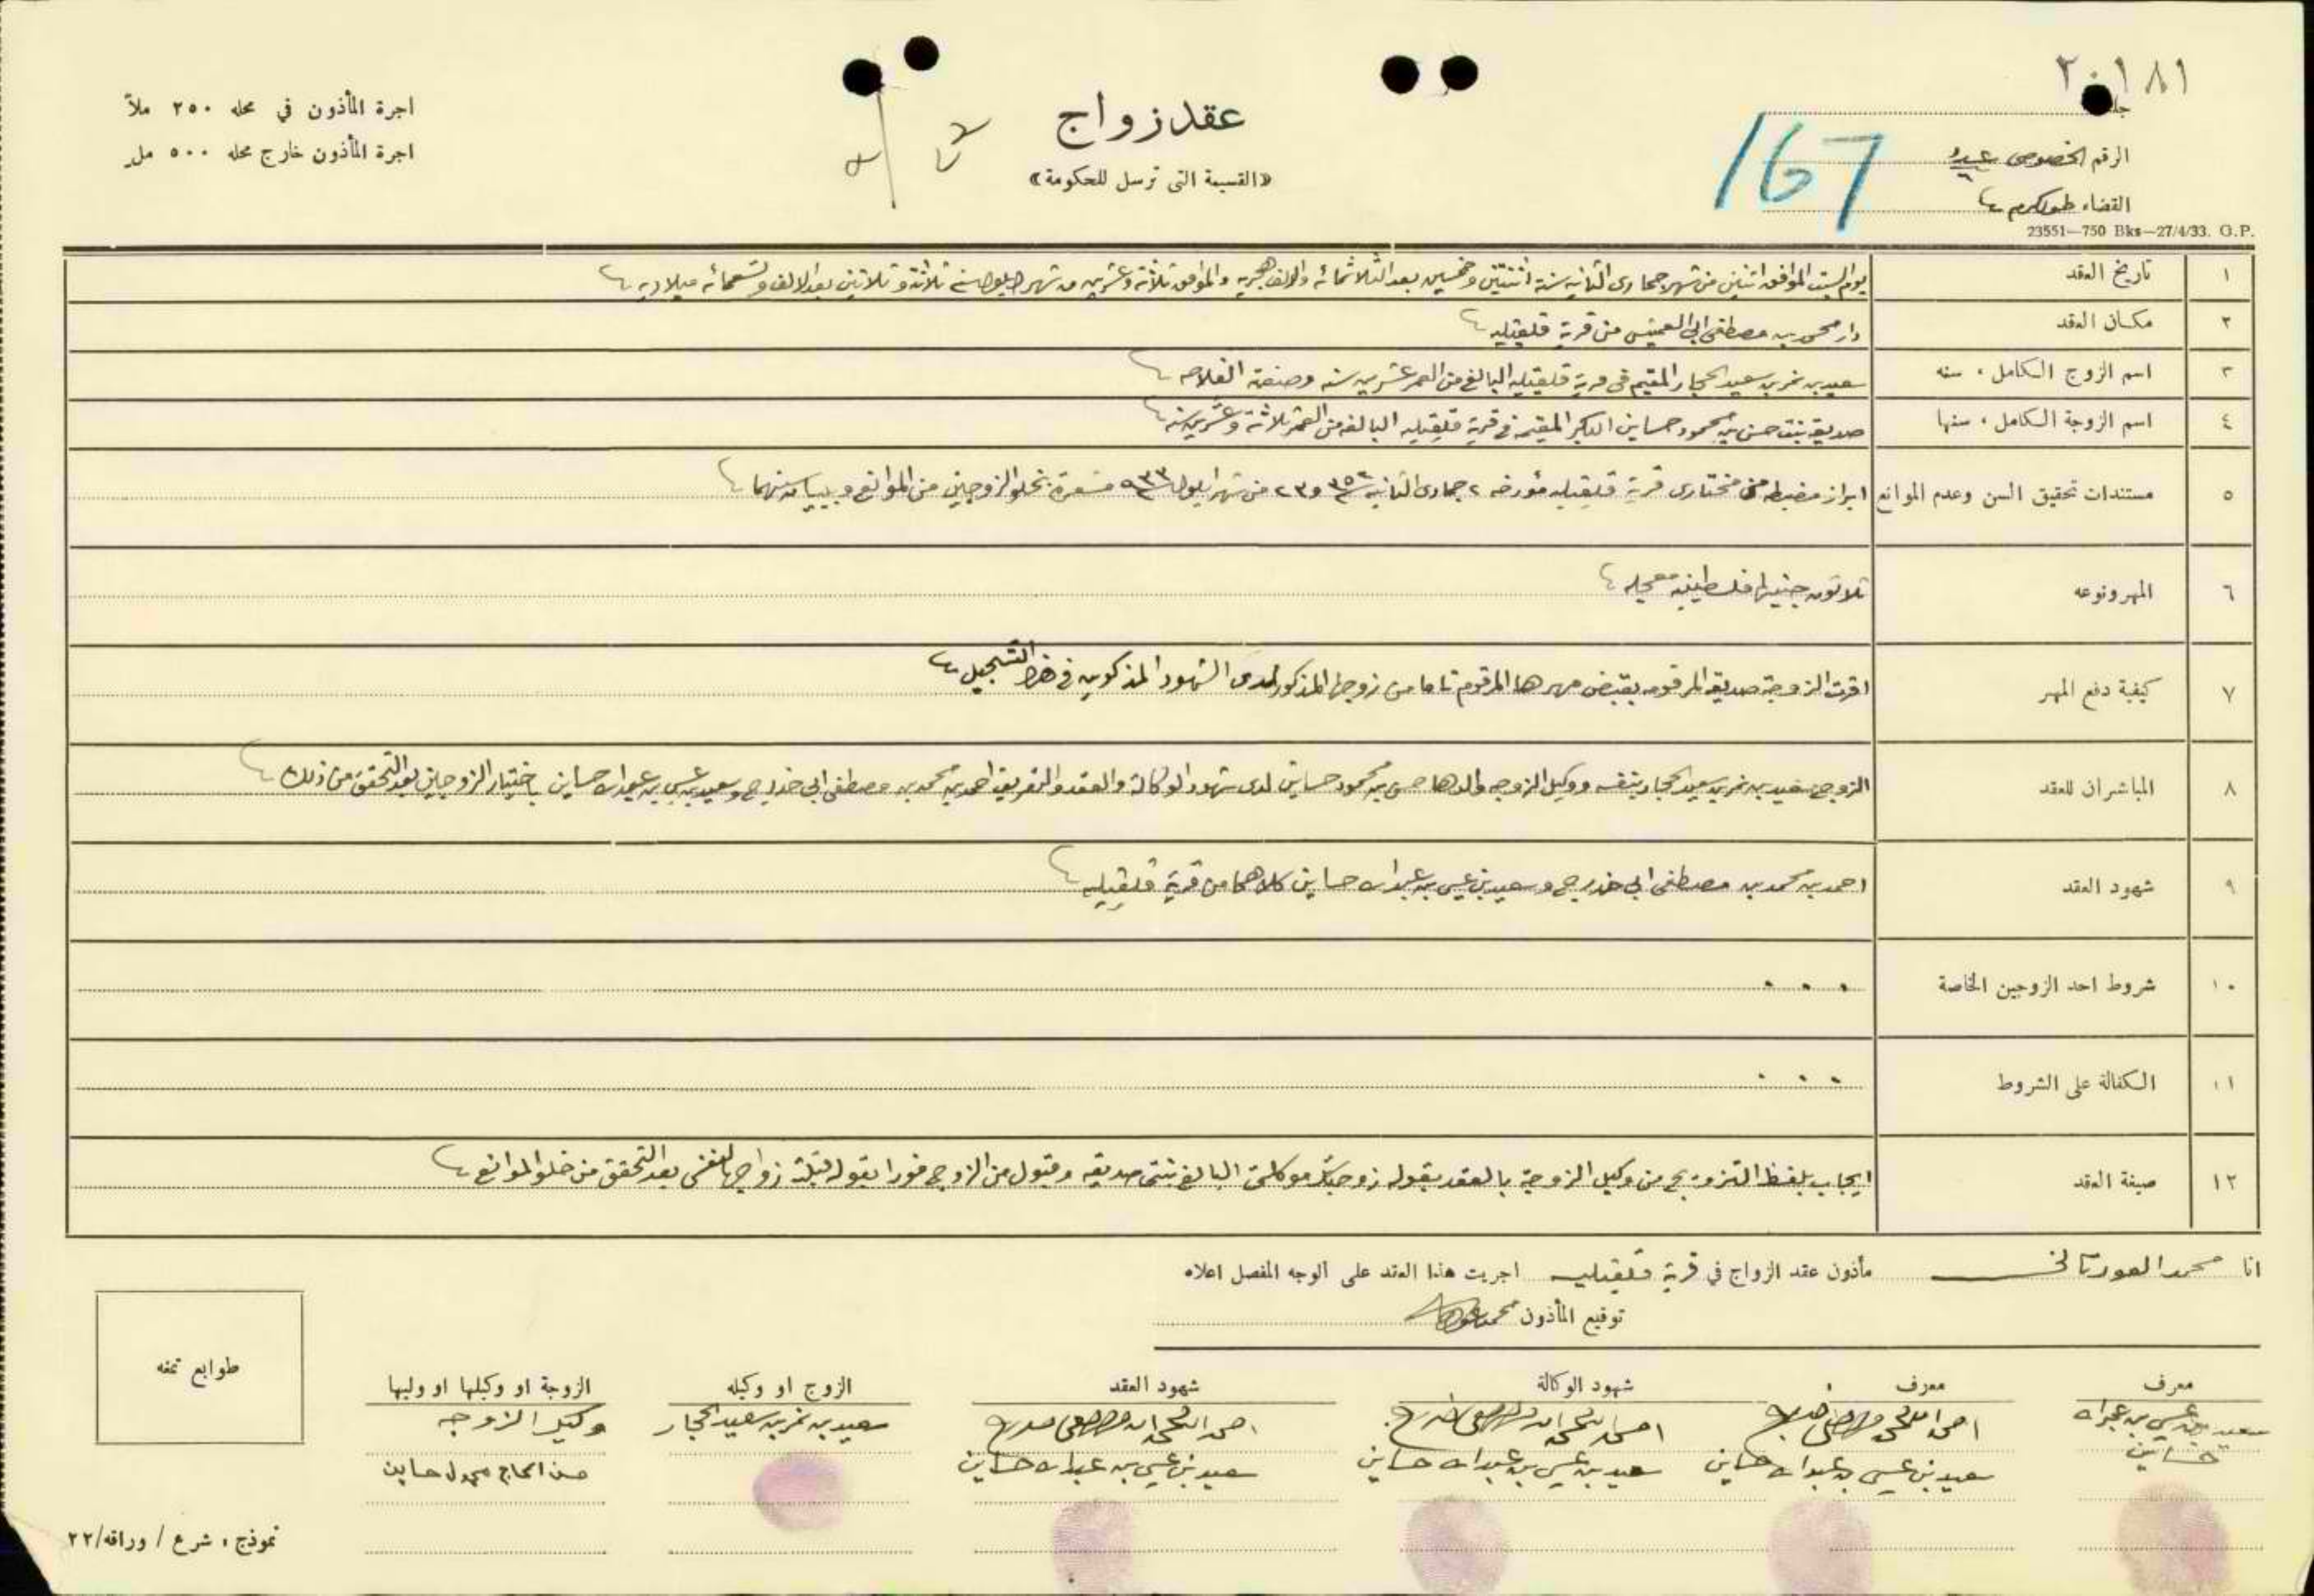 ٢٠١٨١
اجرة المأذون في محله ٢٥٠ ملاً
اجرة المأذون خارج محله ٥٠٠ مل
عقد زواج
«القسيمة التى ترسل للحكومة»
167
الرقم الخصوصي
القضاء طولكرم
23551—750 Bks—27/4/33. G.P.
١ تاريخ العقد يوم السبت الموافق اثنين من شهر جمادى الثانيه سنة اثنتين وخمسين بعد الثلاثمائه والالف هجريه والموافق ثلاثة وعشرين من شهر ايلول سنة ثلاثة وثلاثين بعد الالف وتسعمائه ميلاديه
٢ مكان العقد دار محمد بن مصطفى ابي من قرية قلقيليه
٣ اسم الزوج الكامل، سنه سعيد بن نمر بن سعيد الحجار المقيم في قرية قلقيليه البالغ من العمر عشرين سنه وصنعته الفلاحه
٤ اسم الزوجة الكامل، سنها صديقه بنت حسن بن محمود حساين البكر المقيمة في قرية قلقيليه البالغه من العمر ثلاثة وعشرين سنه
٥ مستندات تحقيق السن وعدم الموانع ابراز مضبطه من مختارى قرية قلقيليه مؤرخه ٢ جمادى الثانيه ٣٥٢ و٢٣ من شهر ايلول ٩٣٣ مشعرة بخلو الزوجين من الموانع وببيان سنهما
٦ المهر ونوعه ثلاثون جنيها فلسطينيه معجله
٧ كيفية دفع المهر اقرت الزوجة صديقه المرقومه بقبض مهرها المرقوم تاما من زوجها المذكور لدى الشهود المذكورين في هذا التسجيل
٨ المباشران للعقد الزوج سعيد بن نمر بن سعيد الحجار بنفسه ووكيل الزوجه والدها حسن بن محمود حساين لدى شهود الوكالة والعقد والتعريف احمد بن محمد بن مصطفى ابي خدرج وسعيد بن عيسى بن عبدالله حساين باختيار الزوجين بعد التحقق من ذلك
٩ شهود العقد احمد بن محمد بن مصطفى ابي خدرج وسعيد بن عيسى بن عبدالله حساين كلاهما من قرية قلقيليه
١٠ شروط احد الزوجين الخاصة . . .
١١ الكفالة على الشروط . . .
١٢ صيغة العقد ايجاب بلفظ التزويج من وكيل الزوجة بالعقد بقوله زوجتك موكلتي البالغ بنتي صديقه وقبول من الزوج فورا بقوله قبلت زواجها لنفسي بعد التحقق من خلو الموانع
انا محمد مأذون عقد الزواج في قرية قلقيليه اجريت هذا العقد على الوجه المفصل اعلاه
توقيع المأذون
معرف
سعيد بن عيسى بن عبدالله
حساين
معرف
سعيد بن عيسى بن عبدالله حساين
شهود الوكالة
سعيد بن عيسى بن عبدالله حساين
شهود العقد
سعيد بن عيسى بن عبدالله حساين
الزوج او وكيله
سعيد بن نمر بن سعيد الحجار
الزوجة او وكيلها او وليها
وكيل الزوجه
حسن الحاج محمود حساين
طوابع تمغه
نموذج، شرع / وراقه/٢٢